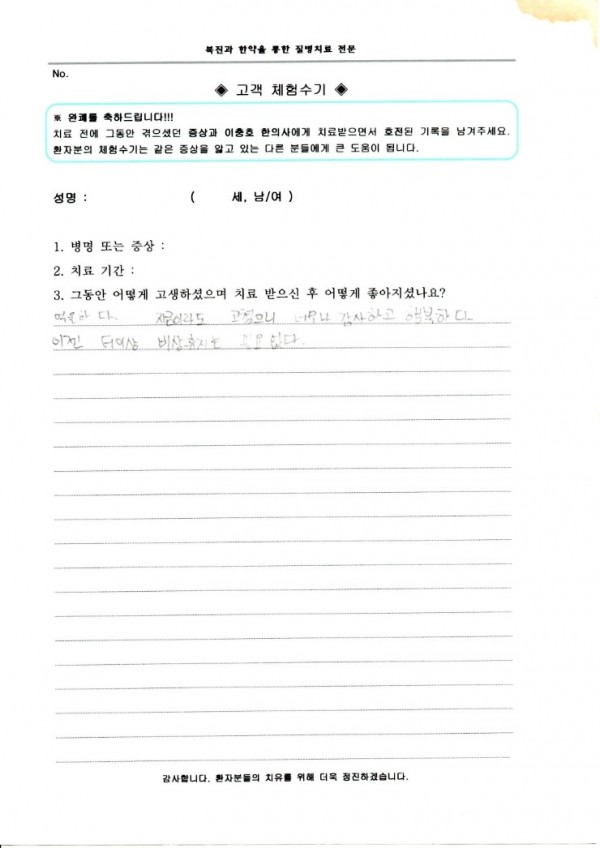 복진과 한약을 통한 질병치료 전문
No.
◈ 고객 체험수기 ◈
※ 완쾌를 축하드립니다!!!
치료 전에 그동안 겪으셨던 증상과 이충호 한의사에게 치료받으면서 호전된 기록을 남겨주세요.
환자분의 체험수기는 같은 증상을 앓고 있는 다른 분들에게 큰 도움이 됩니다.
성명 : ( 세, 남/여 )
1. 병명 또는 증상 :
2. 치료 기간 :
3. 그동안 어떻게 고생하셨으며 치료 받으신 후 어떻게 좋아지셨나요?
억울하다. 지금이라도 고쳤으니 너무나 감사하고 행복하다.
이젠 더이상 비상휴지는 필요 없다.
감사합니다. 환자분들의 치유를 위해 더욱 정진하겠습니다.